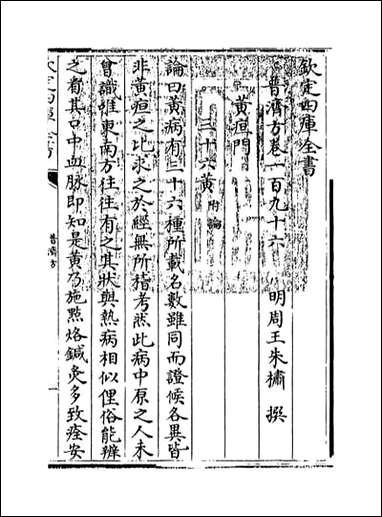 欽定四庫全書
普濟方卷一百九十六
明周王朱橚撰
黃疸門
三十六黃附論
論曰黃病有三十六種所載名數雖同而證候各異皆
非黃疸之比求之於經無所稽考然此病中原之人未
曾識唯東南方往往有之其狀與熱病相似俚俗能辨
之看其口中血脉即知是黃乃施㸃烙鍼灸多致痊安
欽定四庫全書
普濟方
一